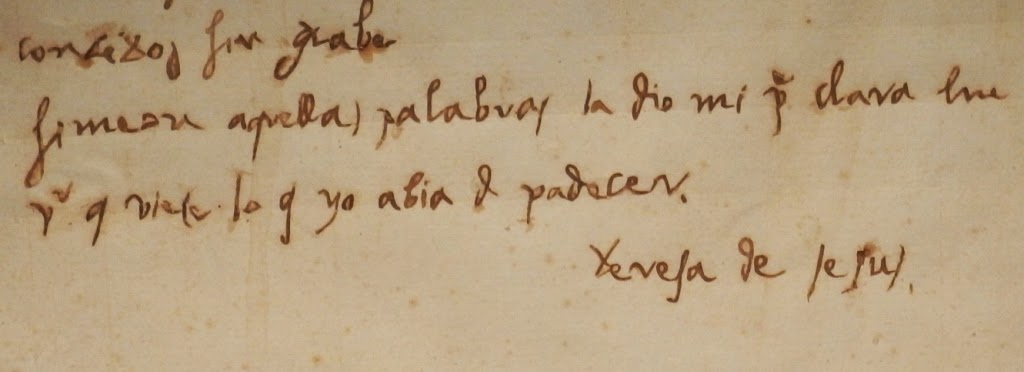 consexos sin grabe
simeon aquellas palabras la dio mi pe clara luz
pa q viese lo q yo abia d padecer.
teresa de Jesus.